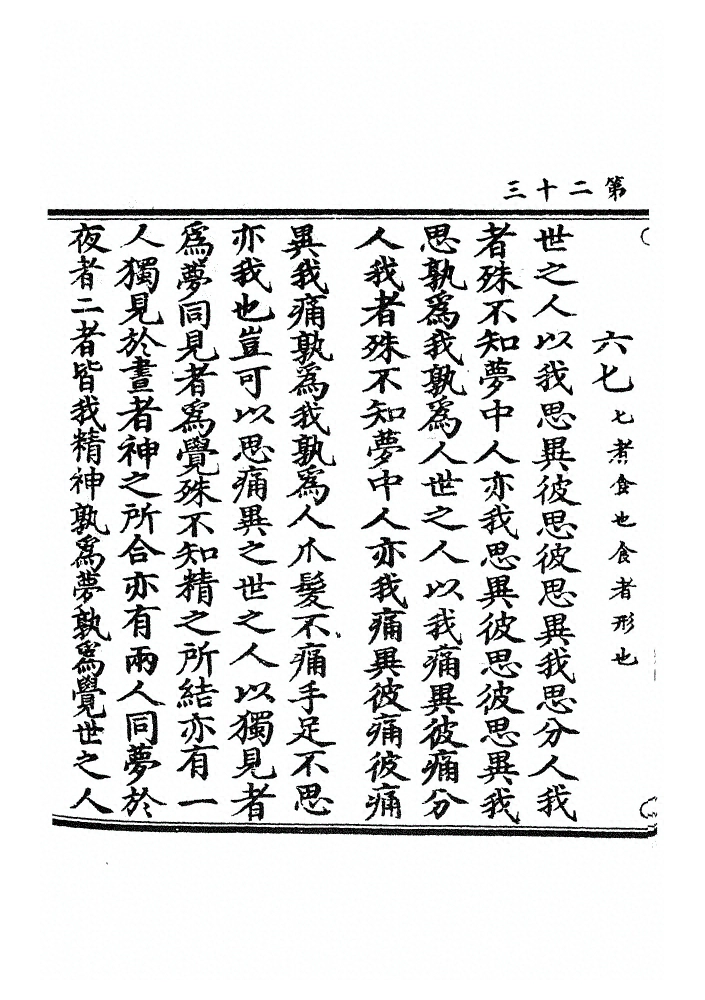 第二十三
六七七煮食也食者形也
世之人以我思異彼思彼思異我思分人我
者殊不知夢中人亦我思異彼思彼思異我
思孰為我孰為人世之人以我痛異彼痛分
人我者殊不知夢中人亦我痛異彼痛彼痛
異我痛孰為我孰為人爪髮不痛手足不思
亦我也豈可以思痛異之世之人以獨見者
為夢同見者為覺殊不知精之所結亦有一
人獨見於晝者神之所合亦有兩人同夢於
夜者二者皆我精神孰為夢孰為覺世之人